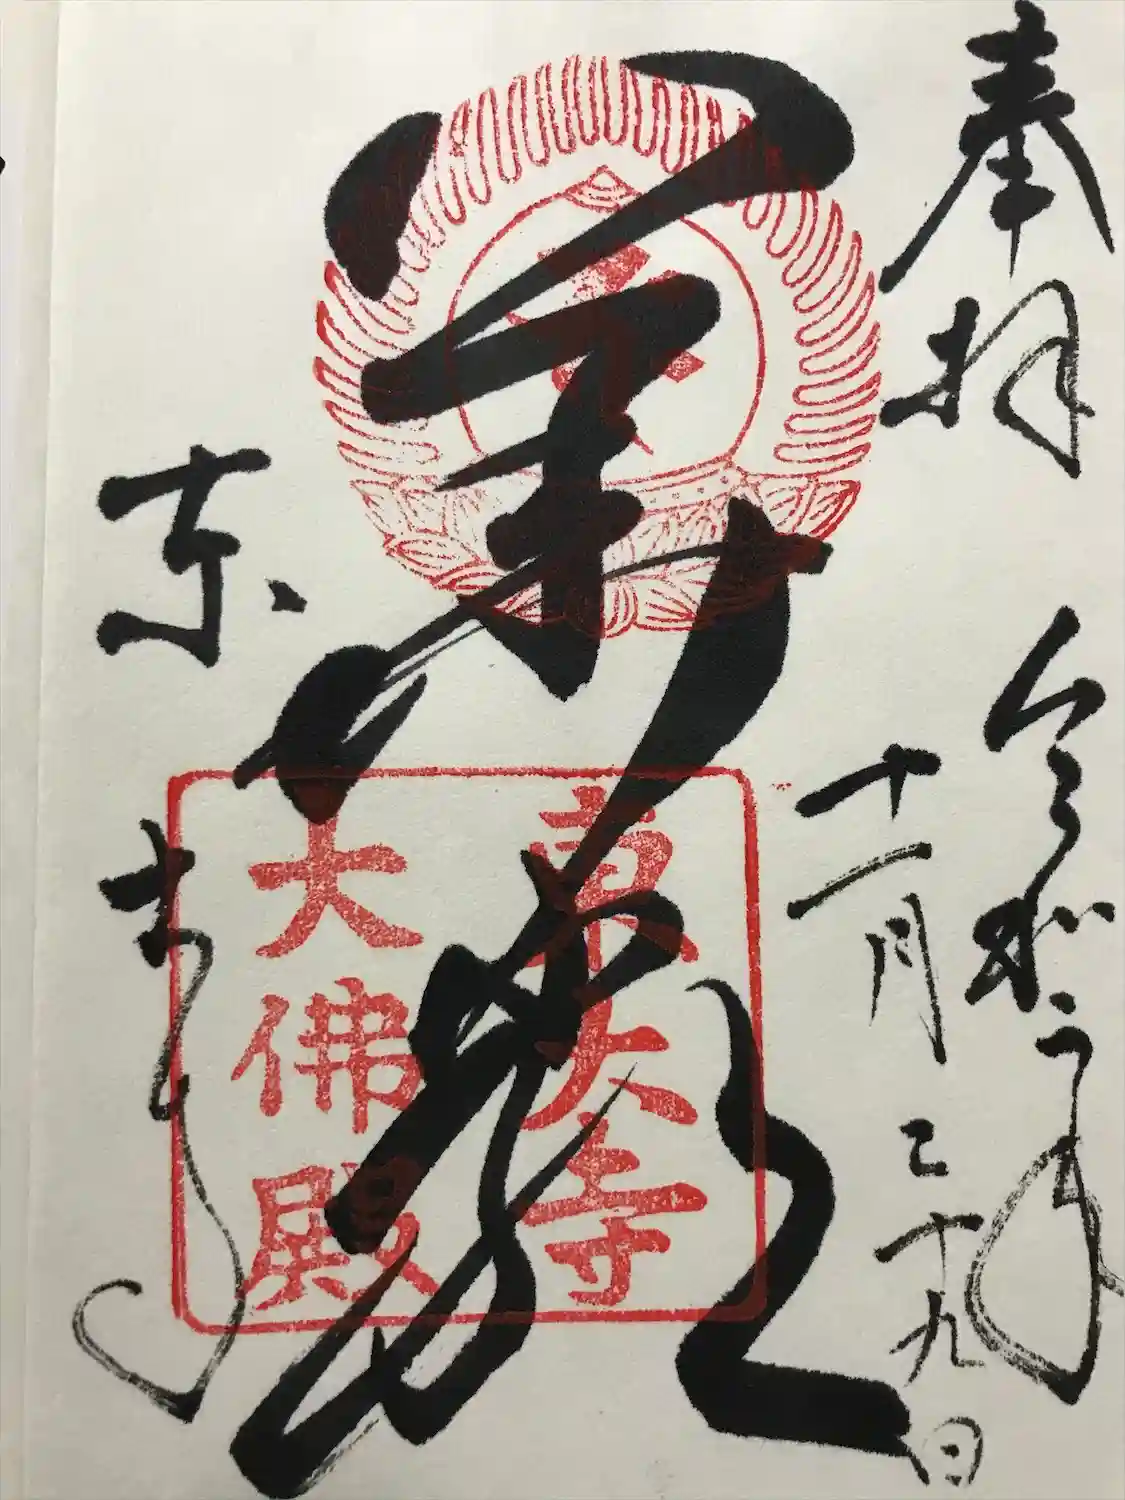 奉拝 令和 年
十一月二十九日
華厳
東大寺
大佛殿
東大寺